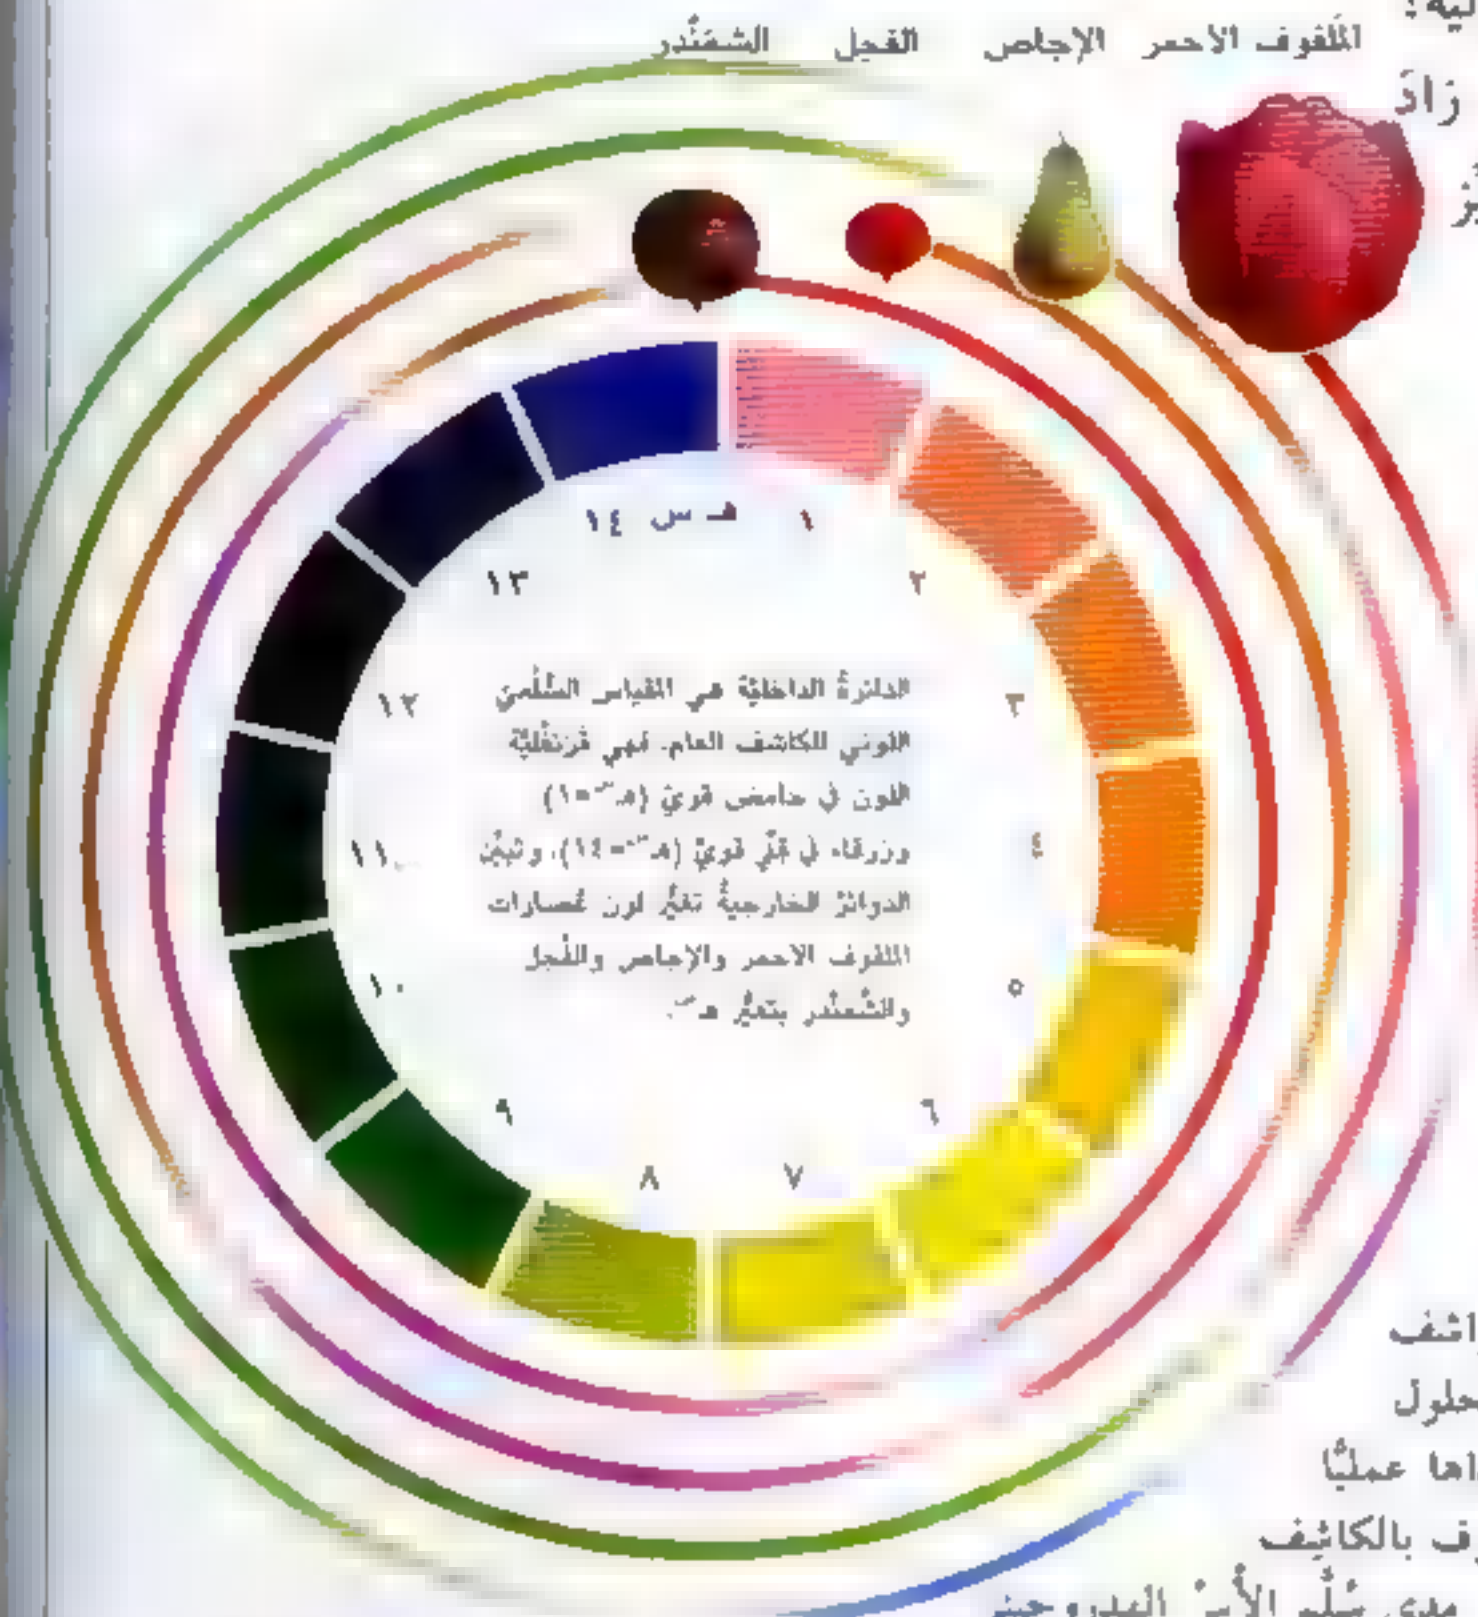 المَلْفوف الاحمر الإجاص الفجل الشمَنْدر
زَادَ
هـ س ١٤
١
٢
٣
٤
٥
٦
٧
٨
٩
١٠
١١
١٢
١٣
الدائرةُ الداخليَّة هي المقياس السُلَّميّ
اللوني للكاشف العام. فهي قَرَنفُليَّة
اللون في حامض قويّ (هـس=١)
وزرقاء في قِلْي قويّ (هـس=١٤). وتبيِّن
الدوائرُ الخارجيةُ تغيُّر لون عُصارات
الملفوف الاحمر والإجاص والفُجل
والشَّمَنْدر بتغيُّر هـس.
حلول
عمليًّا
بالكاشِف
مدى سُلَّم الأُسّ الهدروجيني